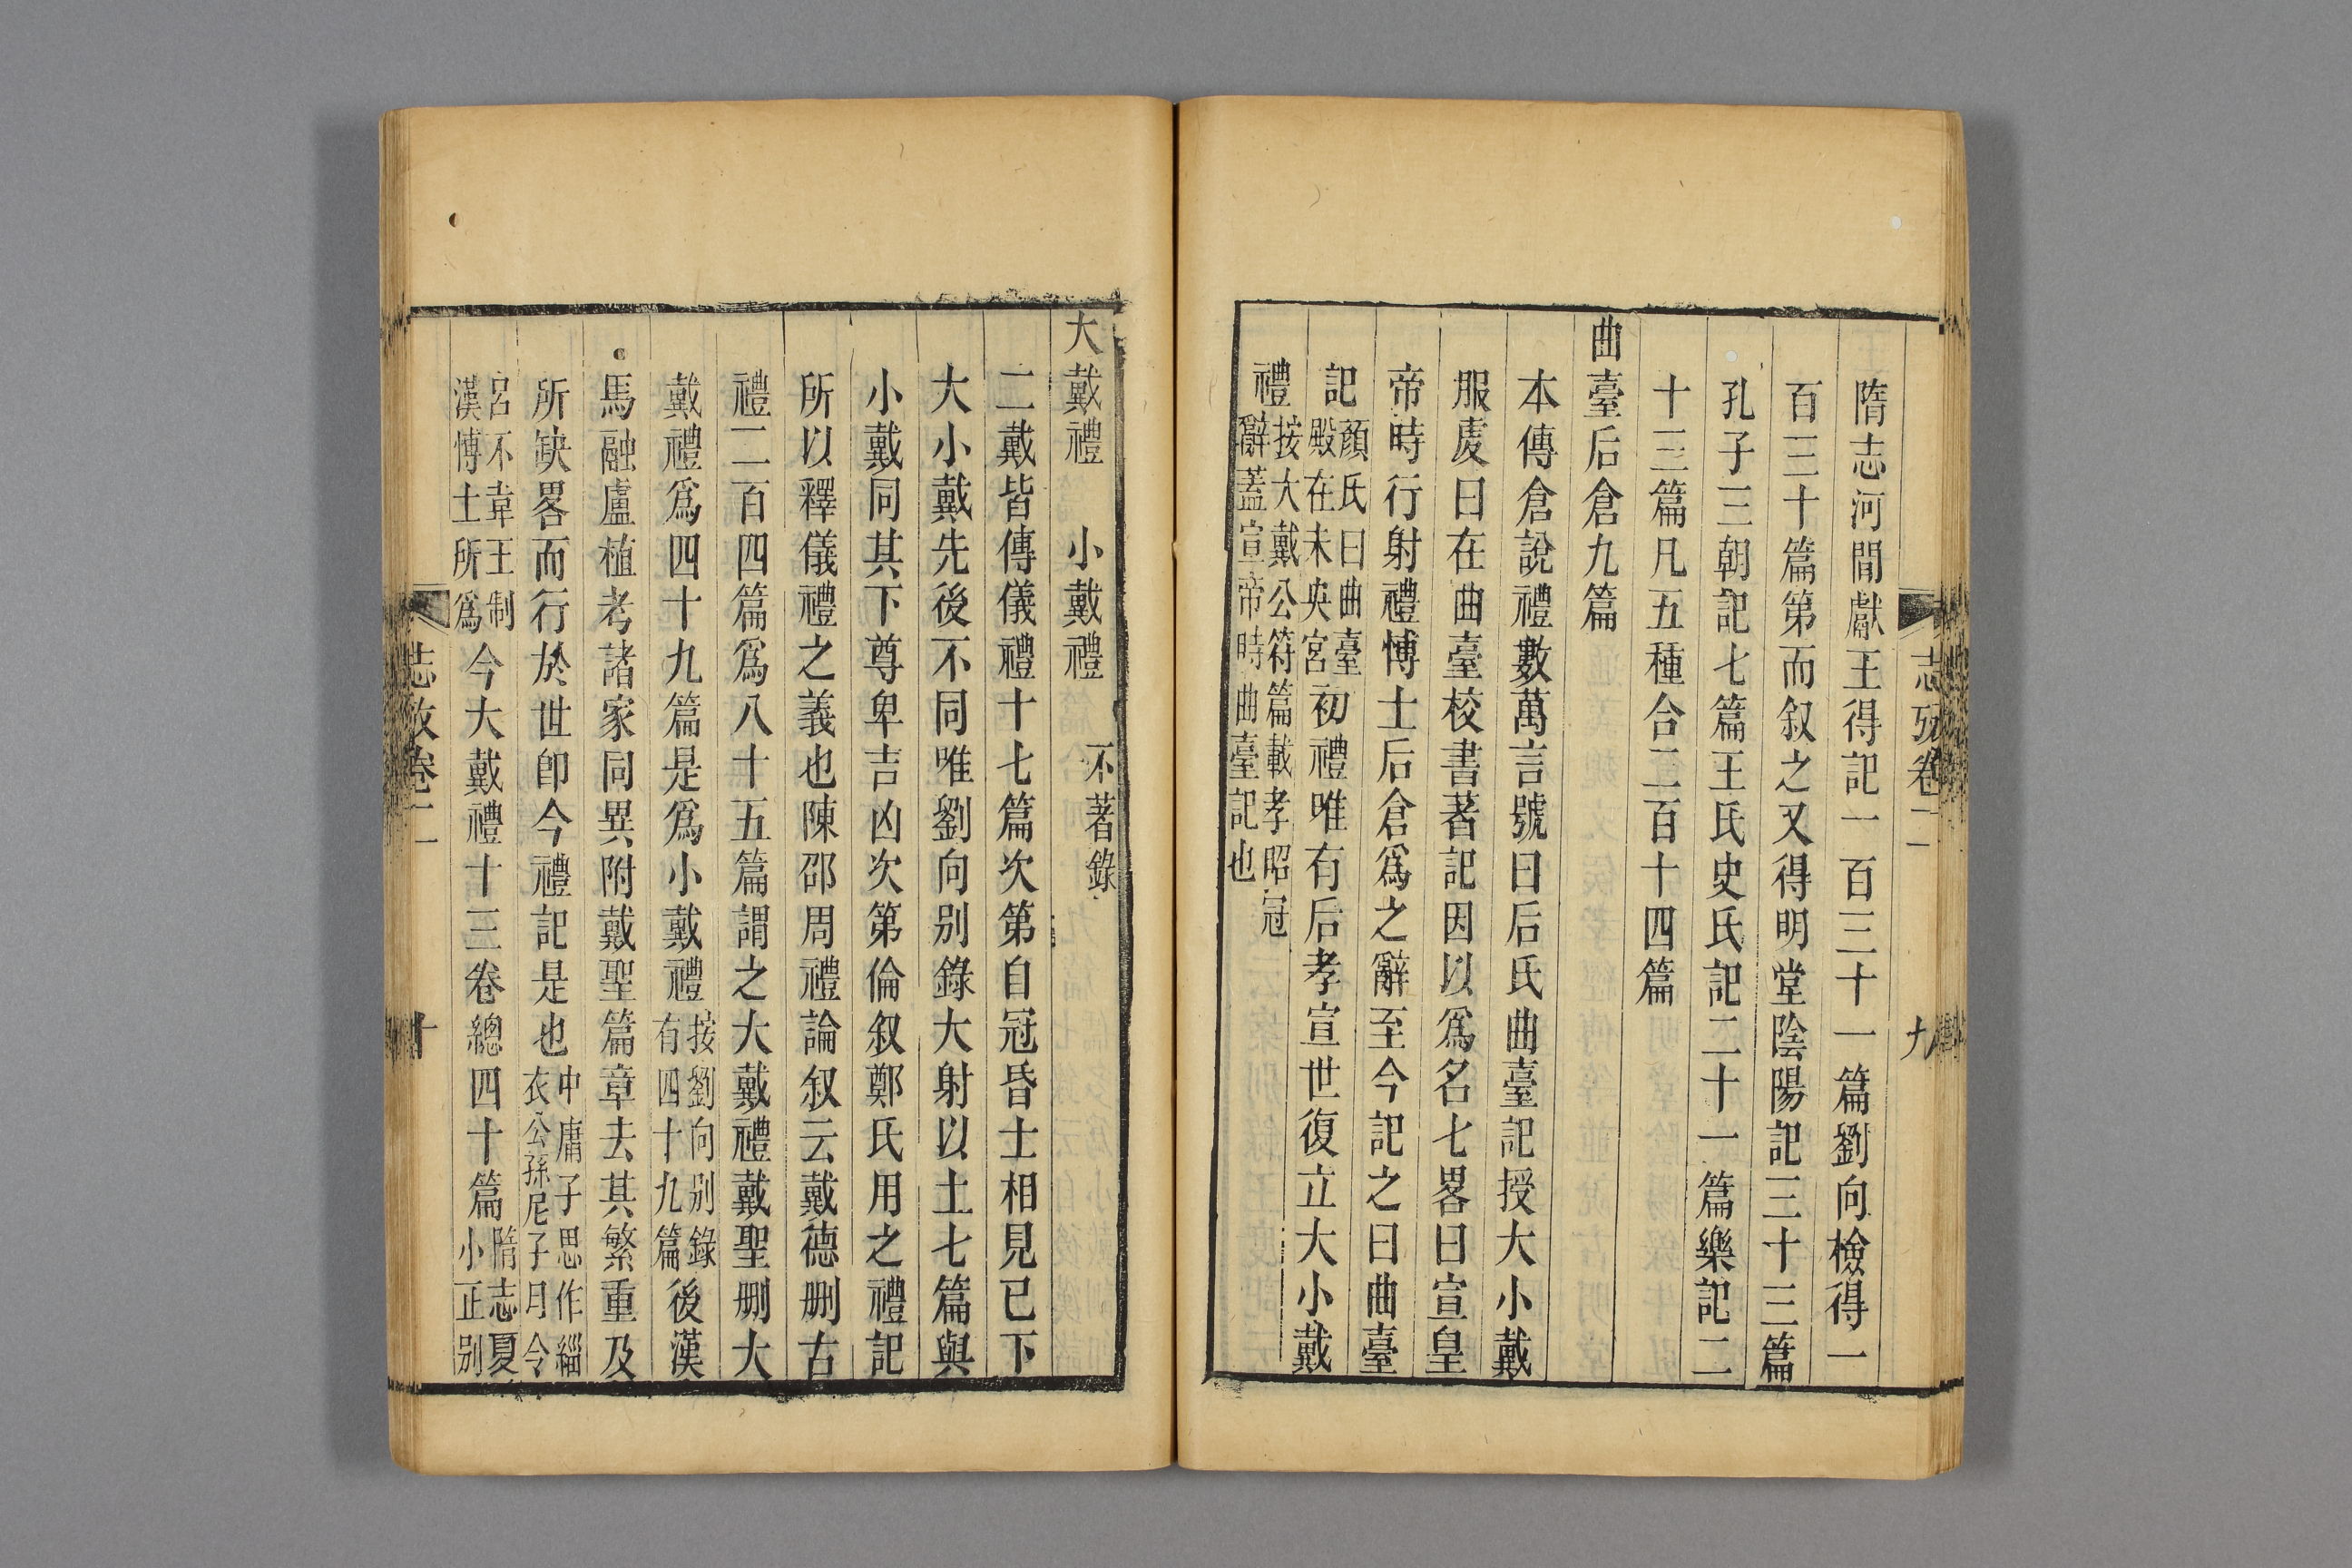 志攷卷二
九
隋志河間獻王得記一百三十一篇劉向檢得一
百三十篇第而叙之又得明堂陰陽記三十三篇
孔子三朝記七篇王氏史氏記二十一篇樂記二
十三篇凡五種合二百十四篇
曲臺后倉九篇
本傳倉說禮數萬言號曰后氏曲臺記授大小戴
服虔曰在曲臺校書著記因以爲名七畧曰宣皇
帝時行射禮博士后倉爲之辭至今記之曰曲臺
記顔氏曰曲臺殿在未央宮初禮唯有后孝宣世復立大小戴
禮按大戴公符篇載孝昭冠辭蓋宣帝時曲臺記也
大戴禮 小戴禮 不著錄
二戴皆傳儀禮十七篇次第自冠昏士相見已下
大小戴先後不同唯劉向別錄大射以土七篇與
小戴同其下尊卑吉凶次第倫叙鄭氏用之禮記
所以釋儀禮之義也陳邵周禮論叙云戴德删古
禮二百四篇爲八十五篇謂之大戴禮戴聖删大
戴禮爲四十九篇是爲小戴禮按劉向别錄有四十九篇後漢
馬融盧植考諸家同異附戴聖篇章去其繁重及
所缺畧而行於世卽今禮記是也中庸子思作緇衣公孫尼子月令
呂不韋王制漢博士所爲今大戴禮十三卷總四十篇隋志夏小正别
志攷卷二
十